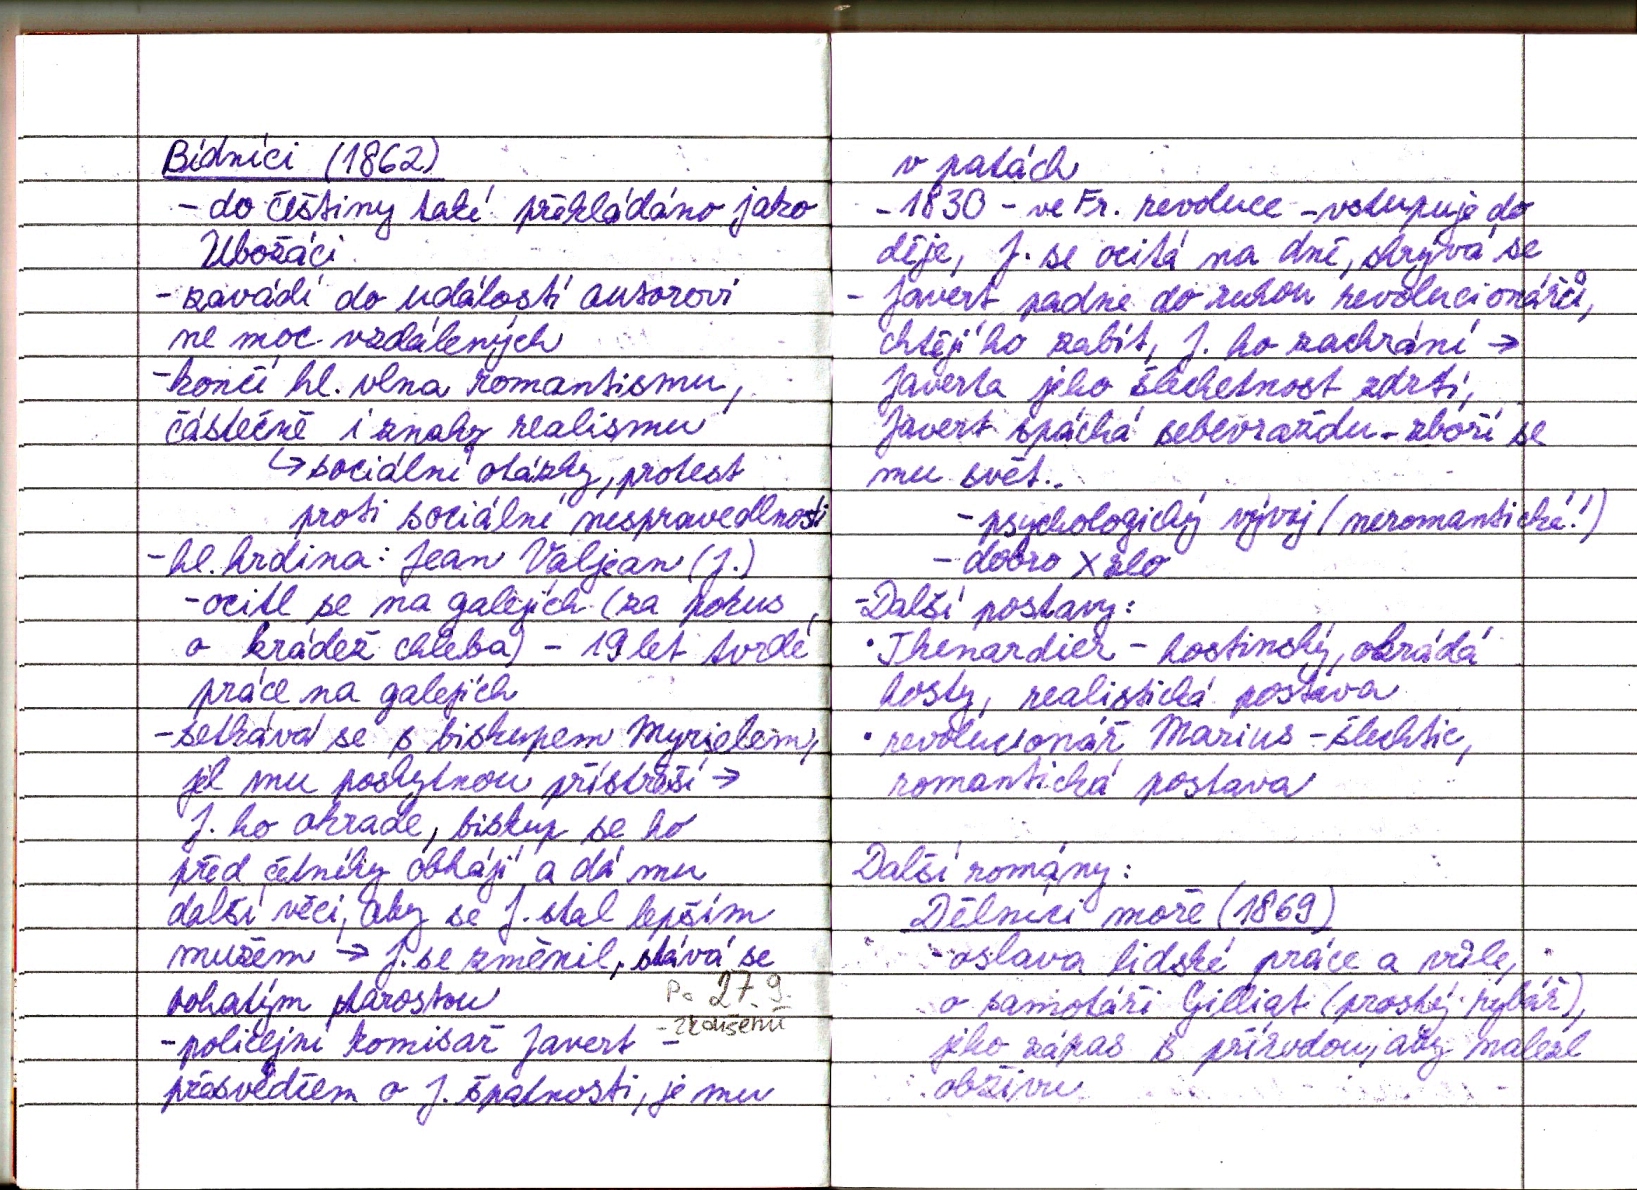 Bídníci (1862)
- do češtiny také překládáno jako
Ubožáci
- zavádí do událostí autorovi
ne moc vzdálených
- končí hl. vlna romantismu,
částečně i znaky realismu
↳ sociální otázky, protest
proti sociální nespravedlnosti
- hl. hrdina: Jean Valjean (J.)
- ocitl se na galejích (za pokus
o krádež chleba) - 19 let tvrdé
práce na galejích
- setkává se s biskupem Myrielem,
jel mu poskytnou přístřeší →
J. ho okrade, biskup se ho
před četníky obhájí a dá mu
další věci, aby se J. stal lepším
mužem → J. se změnil, stává se
bohatým starostou
Po 27. 9.
- zkoušení
- policejní komisař Javert -
přesvědčem o J. špatnosti, je mu
v patách
- 1830 - ve Fr. revoluce - vstupuje do
děje, J. se ocitá na dně, skrývá se
- Javert padne do rukou revolucionářů,
chtějí ho zabít, J. ho zachrání →
Javerta jeho šlechetnost zdrtí,
Javert spáchá sebevraždu - zboří se
mu svět..
- psychologický vývoj (neromantické!)
- dobro X zlo
- Další postavy:
• Thenardier - hostinský, okrádá
hosty, realistická postava
• revolucionář Marius - šlechtic,
romantická postava
Další romány:
Dělníci moře (1869)
- oslava lidské práce a vůle,
o samotáři Gilliat (prostý rybář),
jeho zápas s přírodou, aby nalezl
obživu